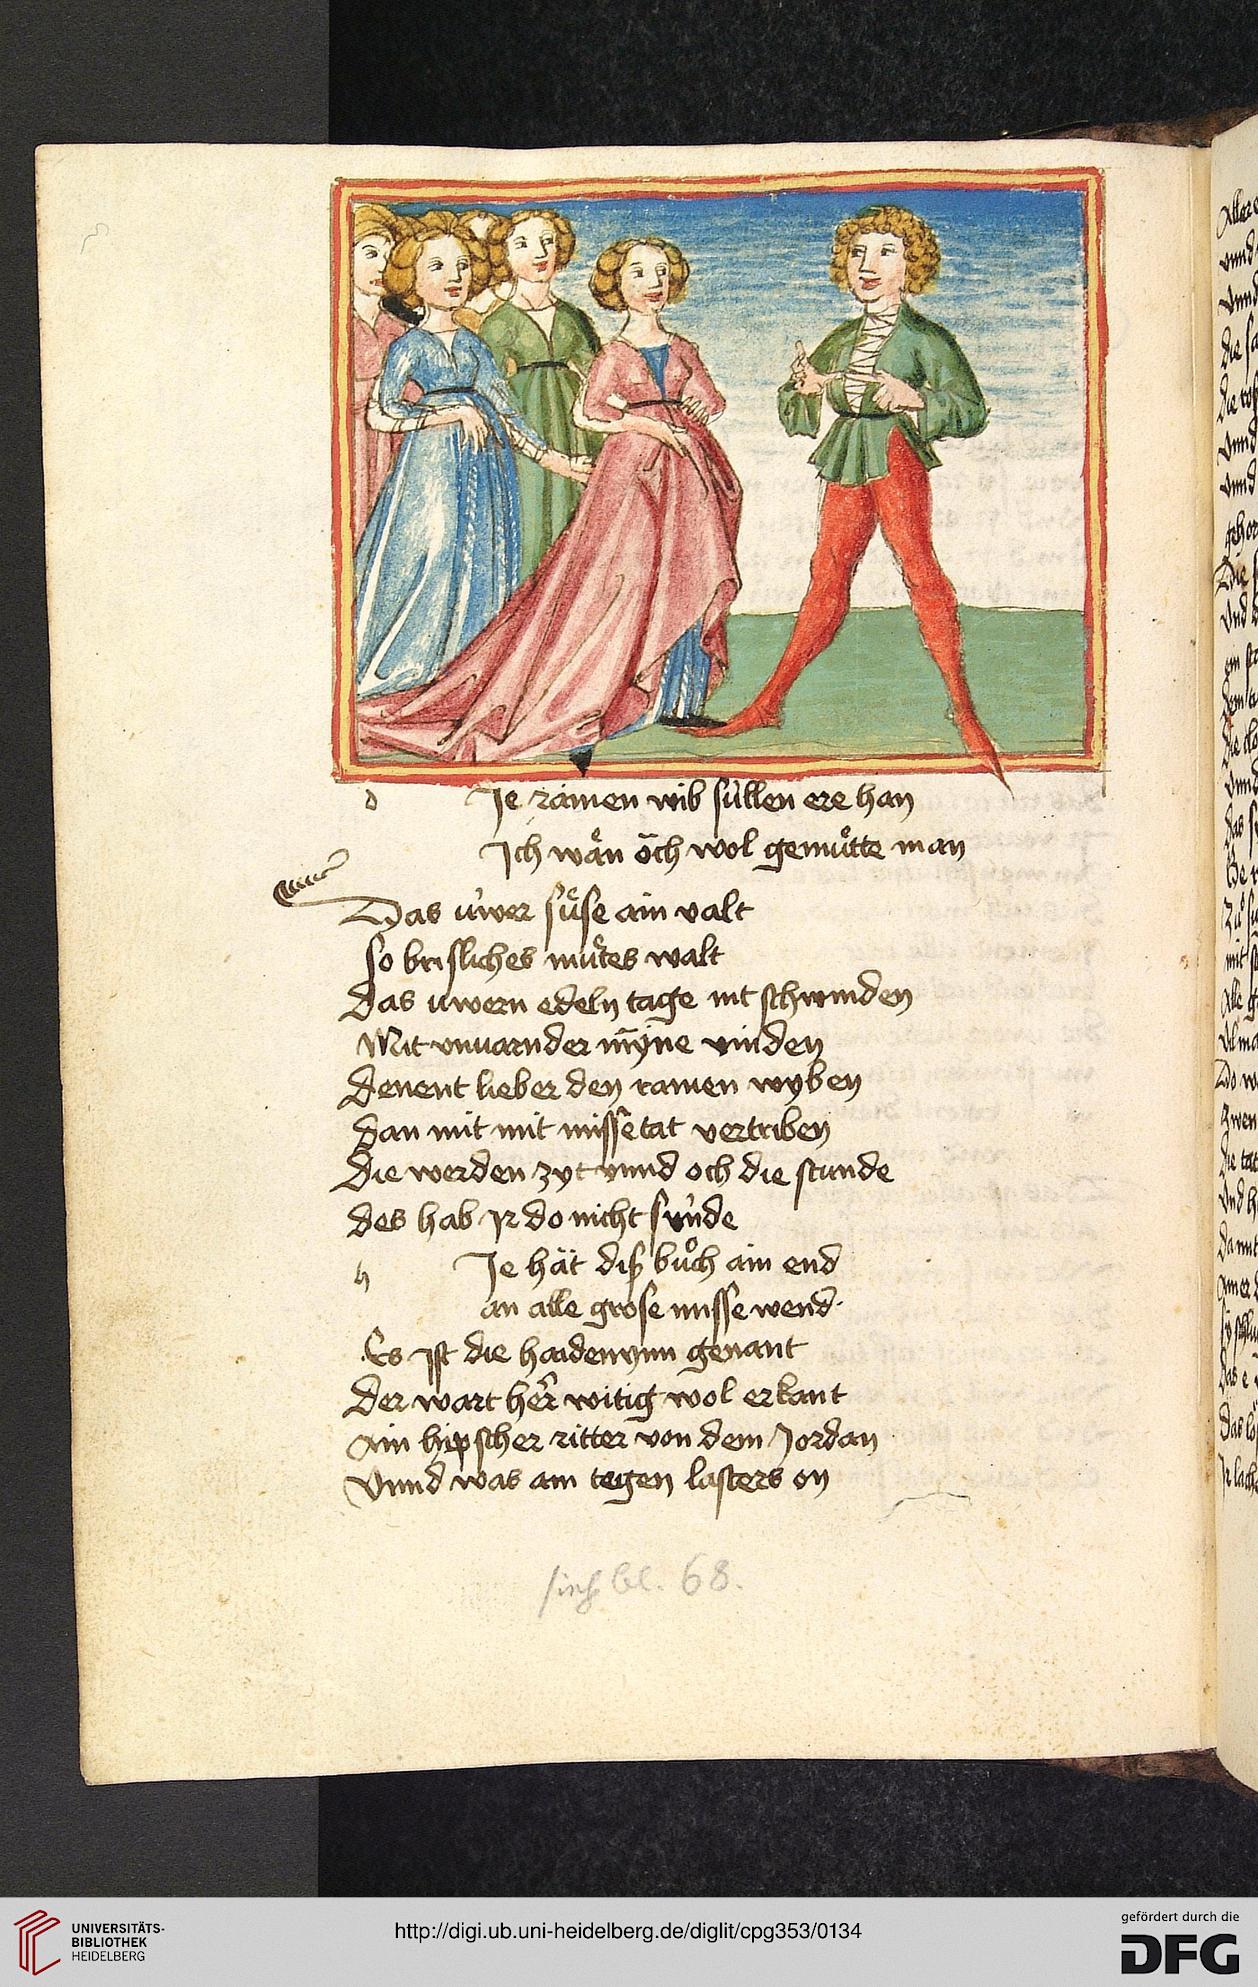 d Je ramen wib süllen ere han
Ich wän öch wol gemuͤtte man
Das uwer suͤse ain valt
so brisliches muͤtes walt
Das uwern edeln tage nit schwinden
Mit vnuarnder myne vinden
Denent lieber den ramen wyben
Dan mit mit missetat vertriben
Die werden zyt vnnd och die stunde
des hab Ir do nicht sünde
h Je hät diß buͦch ain end
an alle grose missewend
Es ist die haidenynn genant
Der wart herr witig wol erkant
Ain hipscher ritter von dem Jordan
Vnnd was ain tegen lasters on
sieh bl. 68.
UNIVERSITÄTS-
BIBLIOTHEK
HEIDELBERG
http://digi.ub.uni-heidelberg.de/diglit/cpg353/0134
gefördert durch die
DFG